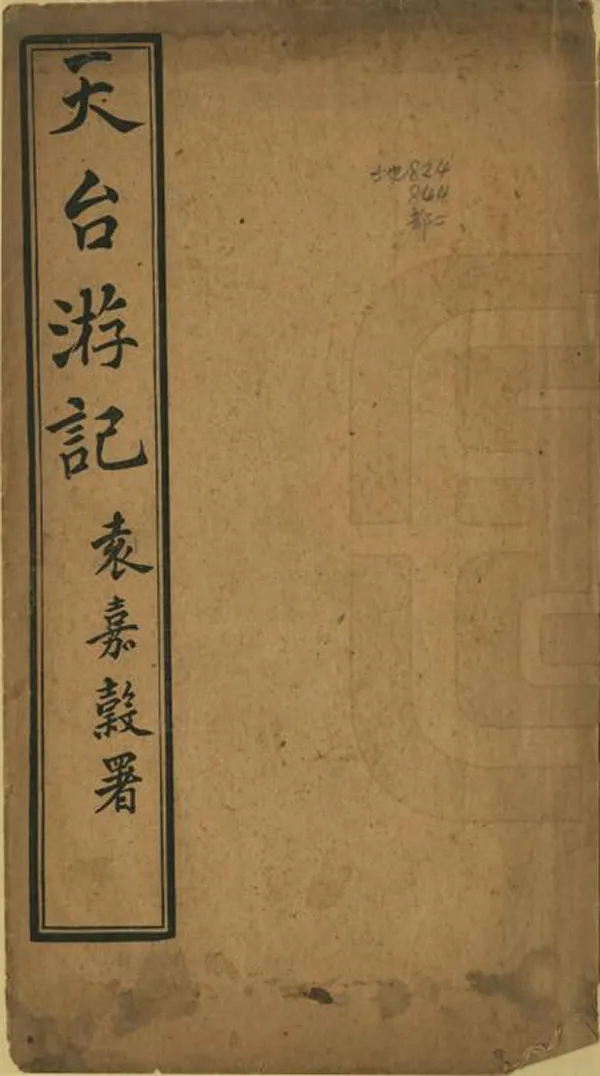 天台游記
袁嘉穀署
地824
844
部二